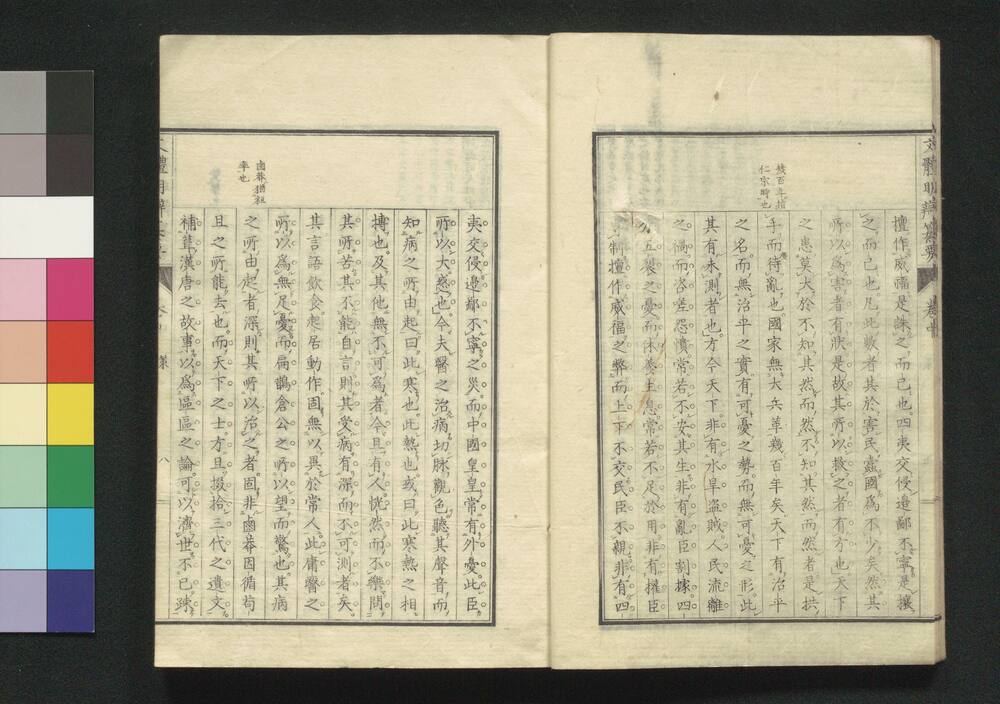 文體明辯纂要
幾百年指
仁宗時也
擅作威福是誅之而已也四夷交侵邊鄙不寧是攘
之而已也凡此數者其於害民蠹國爲不少矣然其
所以爲害者有狀是故其所以救之者有方也天下
之患莫大於不知其然而然不知其然而然者是拱
手而待亂也國家無大兵革幾百年矣天下有治平
之名而無治平之實有可憂之勢而無可憂之形此
其有未測者也方今天下非有水旱盜賊人民流離
之禍而咨嗟怨憤常若不安其生非有亂臣割據四
分五裂之憂而休養生息常若不足於用非有權臣
專制擅作威福之弊而上下不交民臣不親非有四
夷交侵邊鄙不寧之災而中國皇皇常有外憂此臣
所以大惑也今夫醫之治病切脉觀色聽其聲音而
知病之所由起曰此寒也此熱也或曰此寒熱之相
搏也及其他無不可爲者今且有人恍然而不樂問
其所苦其不能自言則其受病有深而不可測者矣
其言語飲食起居動作固無以異於常人此庸醫之
所以爲無足憂而扁鵲倉公之所以望而驚也其病
之所由起者深則其所以治之者固非鹵莽因循苟
且之所能去也而天下之士方且掇拾三代之遺文
補葺漢唐之故事以爲區區之論可以濟世不已疎
鹵莽猶粗
率也